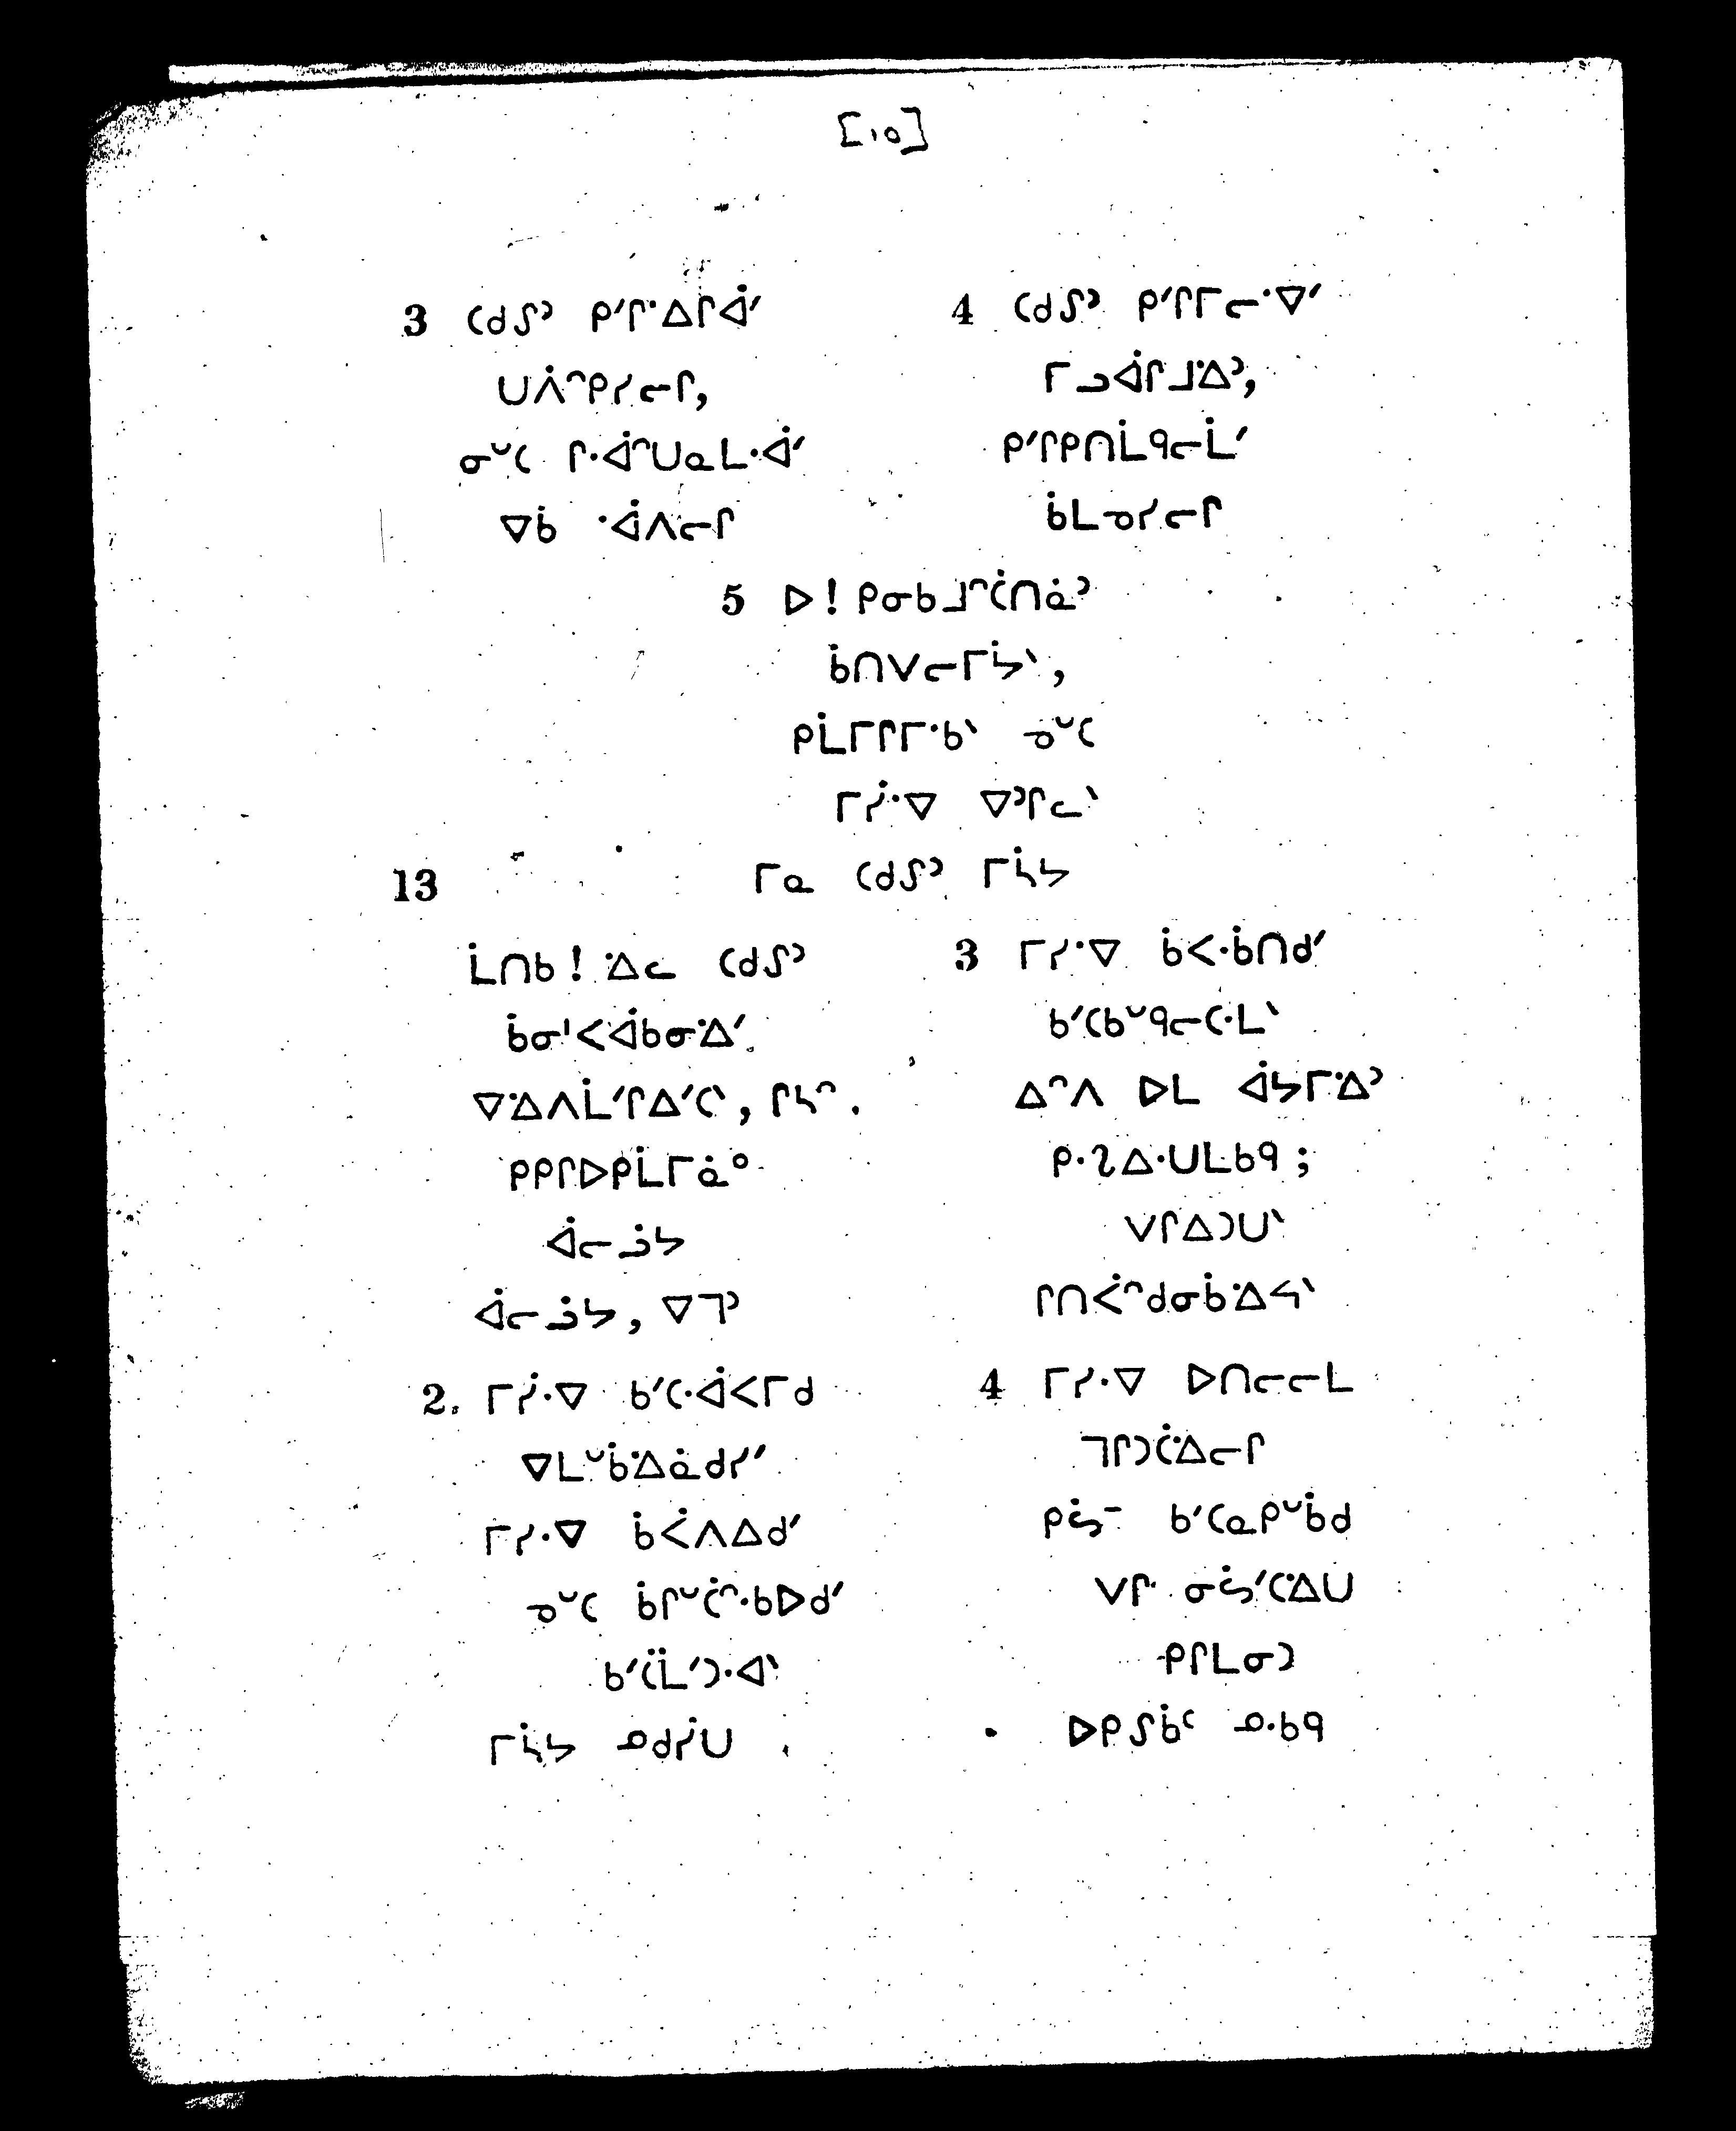 [10]
3 ᑕᑯᔑᐣ ᑭᐟᒋᐧᐃᒋᐋᐟ
ᑌᐲᐢᑭᓯᓕᒋ,
ᓂᐡᑕ ᒋᐧᐋᐢᑌᓇᒪᐧᐋᐟ
ᐁᑳ ᐧᐋᐱᓕᒋ
4 ᑕᑯᔑᐣ ᑭᐟᒋᒥᓕᐧᐁᐟ
ᒥᓗᐋᒋᒧᐎᐣ,
ᑭᐟᒋᑭᑎᒫᑫᓕᒫᐟ
ᑳᒪᓀᓯᓕᒋ
5 ᐅ! ᑭᓂᑲᒧᐢᑖᑎᓈᐣ
ᑳᑎᐯᓕᒥᔮᐠ,
ᑭᒫᒥᒋᒥᐧᑲᐠ ᓀᐡᑕ
ᒥᓰᐧᐁ ᐁᐣᒋᓚᐠ
13 ᒥᓇ ᑕᑯᔑᐣ ᒥᓵᔭ
ᒫᑎᑲ! ᐎᓚ ᑕᑯᔑᐣ
ᑳᓂᑊᐸᐋᑲᓂᐎᐟ
ᐁᐎᐱᒫᐟᒋᐃᐟᑕ, ᒋᓴᐢ
ᑭᑭᒋᐅᑭᒫᒥᓈᐤ
ᐋᓕᓘᔭ
ᐋᓕᓘᔭ, ᐁᒣᐣ
2. ᒥᓰᐧᐁ ᑲᐟᑕᐧᐋᐸᒥᑯ
ᐁᒪᐡᑳᐎᓈᑯᓯᐟ
ᒥᓯᐧᐁ ᑳᐹᐱᐃᑯᐟ
ᓀᐡᑕ ᑳᒋᐡᑖᐢᐧᑲᐅᑯᐟ
ᑲᐟᑖᒫᐟᑐᐧᐊᐠ
ᒥᓵᔭ ᓄᑯᓰᑌ
3 ᒥᓯᐧᐁ ᑳᐸᐧᑳᑎᑯᐟ
ᑲᐟᑕᑲᐡᑫᓕᑕᐧᒪᐠ
ᐃᐢᐱ ᐅᒪ ᐋᔭᒥᐎᐣ
ᑭᐧᔨᐃᐧᑌᒪᑲᑫ;
ᐯᒋᐃᑐᑌᐠ
ᒋᑎᐹᐢᑯᓂᑳᐎᔦᐠ
4 ᒥᓯᐧᐁ ᐅᑎᓕᓕᒪ
ᒣᒋᑐᑖᐎᓕᒋ
ᑭᔮᐨ ᑲᐟᑕᓇᑭᐡᑳᑯ
ᐯᒋ ᓂᔮᐟᑕᐎᑌ
ᑭᒋᒪᓂᑐ
ᐅᑭᔑᑳᑦ ᓄᐧᑲᑫ